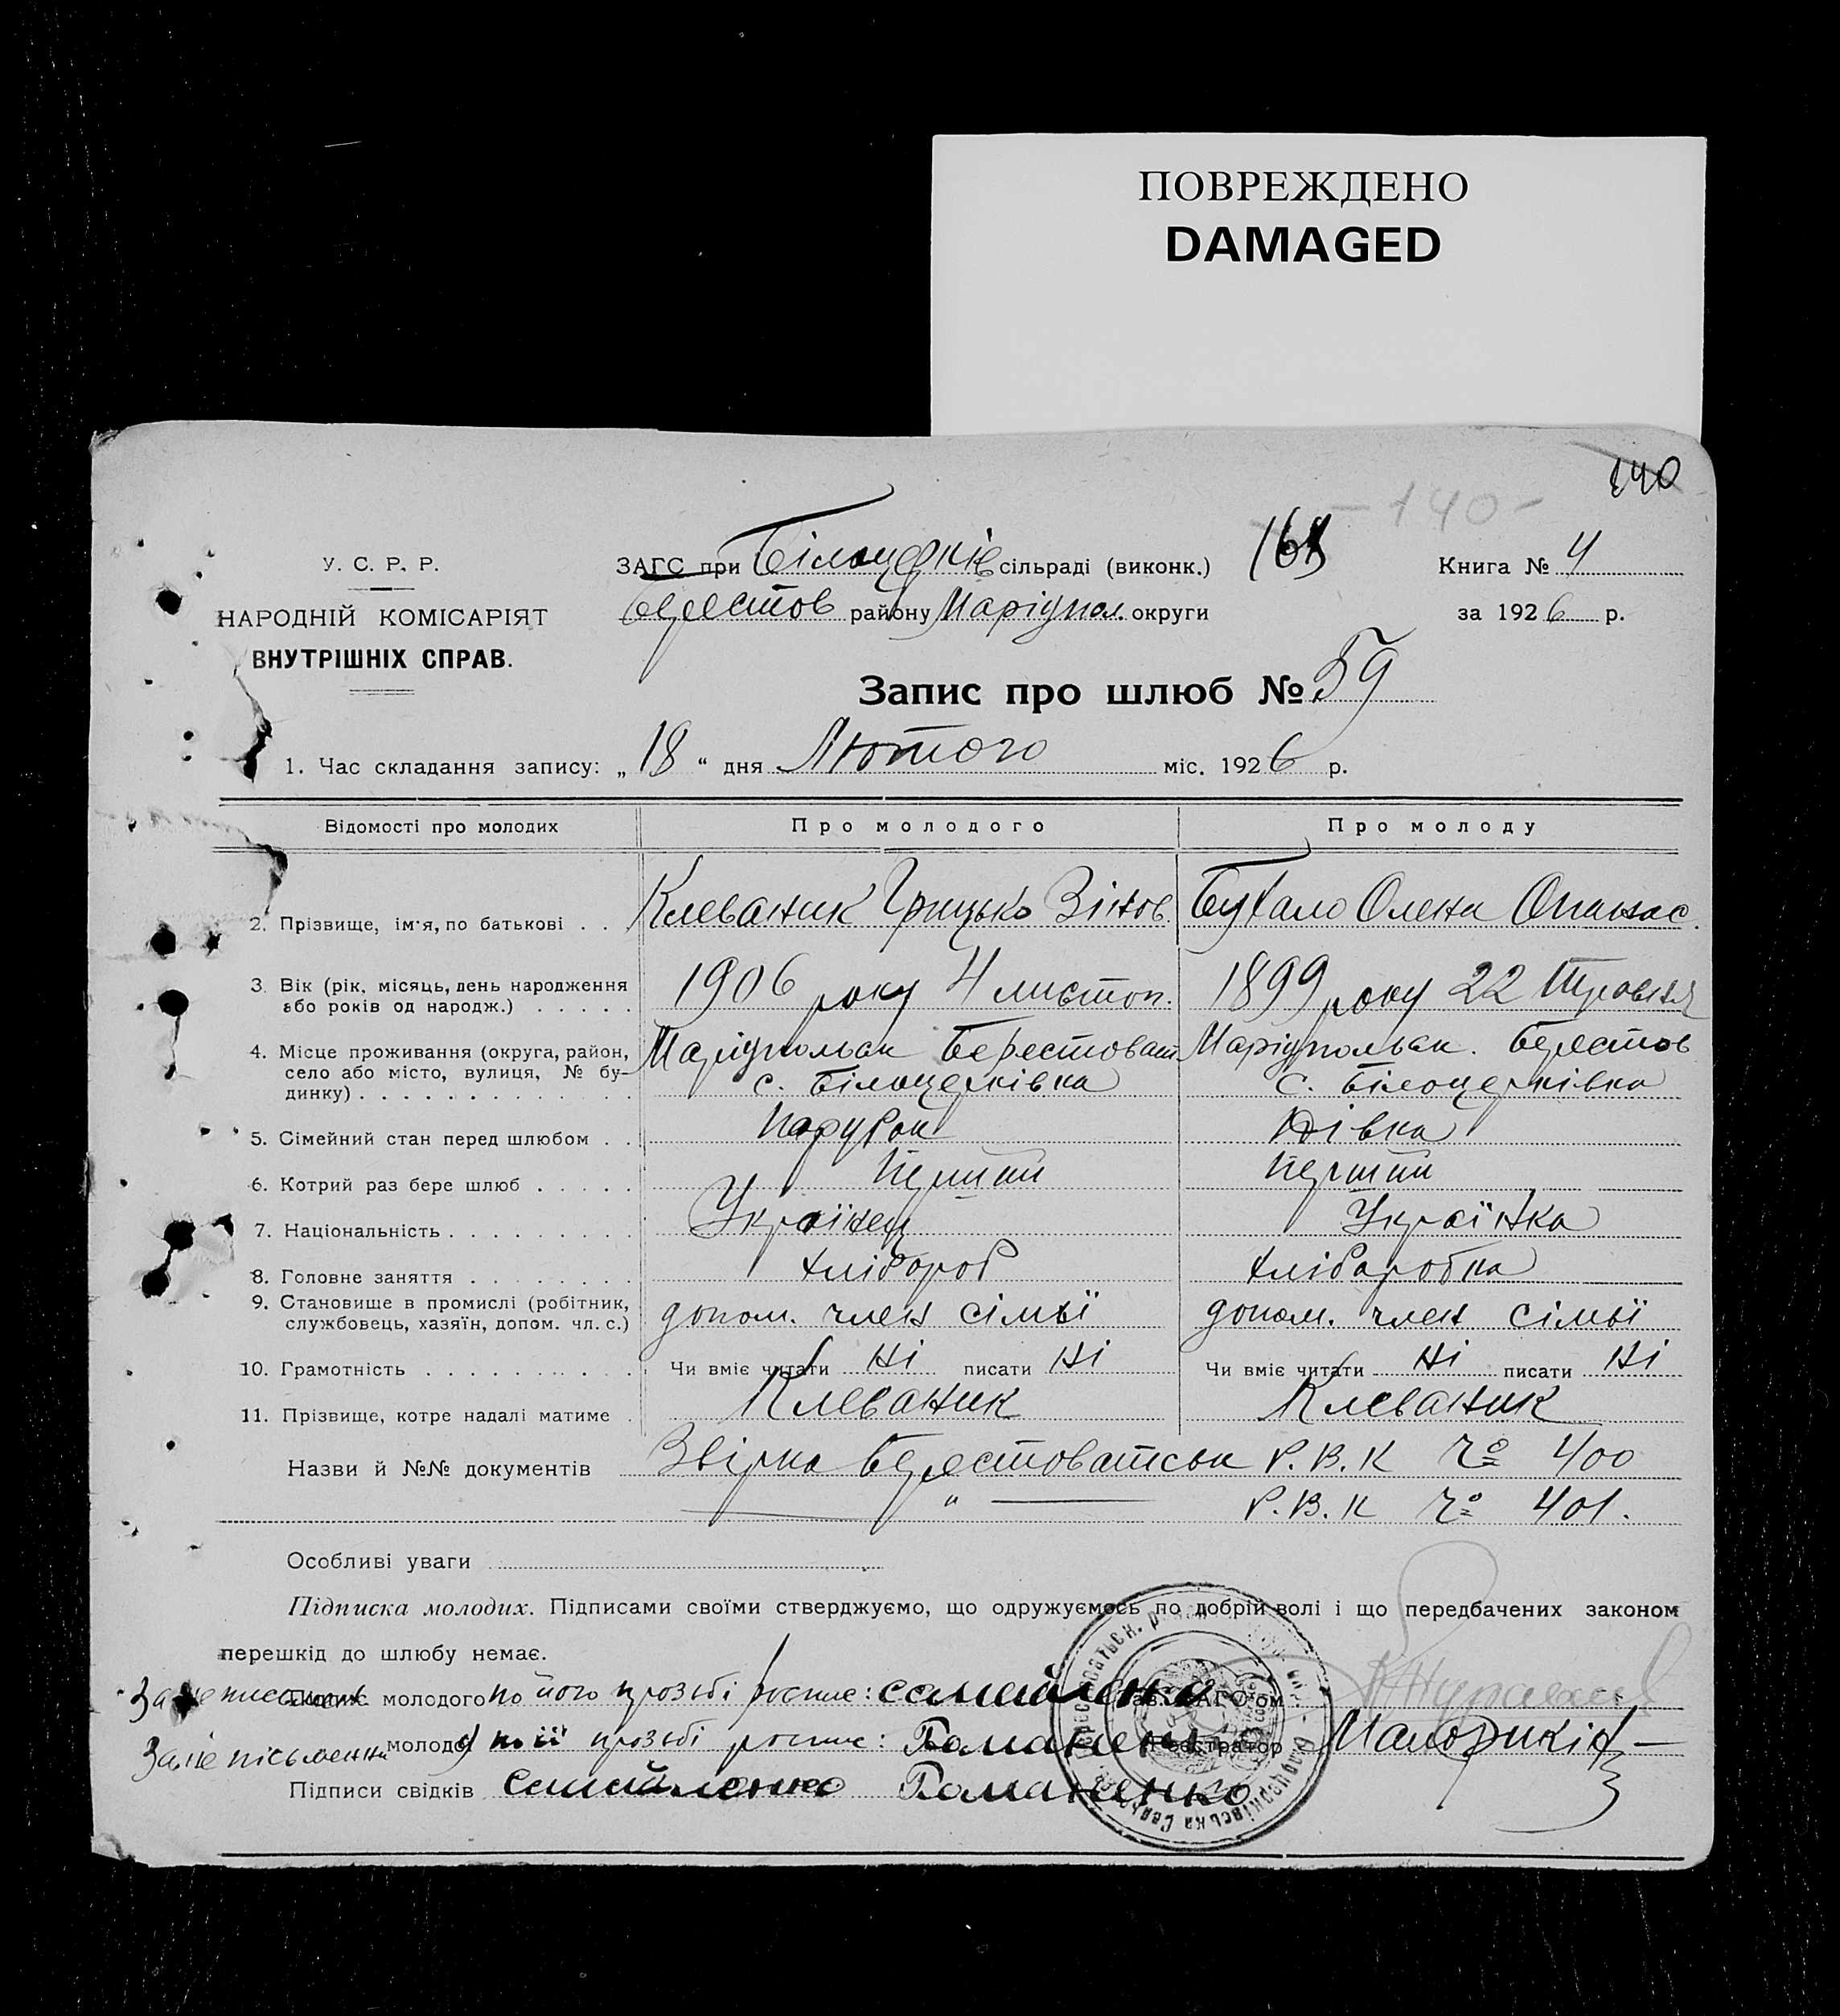 ПОВРЕЖДЕНО
DAMAGED
140
- 140 -
У. С. Р. Р.
НАРОДНІЙ КОМІСАРІЯТ
ВНУТРІШНІХ СПРАВ.
ЗАГС при Білоцерків сільраді (виконк.)
Берестов району Маріупол. округи
Книга № 4
за 1926 р.
Запис про шлюб № 59
1. Час складання запису: „ 18 “ дня Лютого міс. 1926 р.
Відомості про молодих Про молодого Про молоду
2. Прізвище, ім'я, по батькові . . . Клеваник Грицько Зінов. Бухало Олена Опанас.
3. Вік (рік, місяць, день народження або років од народж.) . . . . . 1906 року 4 листоп. 1899 року 22 Травня
4. Місце проживання (округа, район, село або місто, вулиця, № будинку) . . . . . Маріупольск Берестоват с. Білоцерківка Маріупольск. Берестов с. Білоцерківка
5. Сімейний стан перед шлюбом . . Парубок Дівка
6. Котрий раз бере шлюб . . . . . Перший Перший
7. Національність . . . . . . . . . Українец Українка
8. Головне заняття . . . . . . . . Хлібороб Хліборобка
9. Становище в промислі (робітник, службовець, хазяїн, допом. чл. с.) допом. член сімьї допом. член сімьї
10. Грамотність . . . . . . . . . . Чи вміє читати Ні писати Ні Чи вміє читати Ні писати Ні
11. Прізвище, котре надалі матиме . Клеваник Клеваник
Назви й №№ документів Звірка Берестоватськ Р. В. К № 400
— " — Р. В. К № 401.
Особливі уваги
Підписка молодих. Підписами своїми стверджуємо, що одружуємось по добрій волі і що передбачених законом
перешкід до шлюбу немає.
Підпис молодого по його прозьбі роспис: Самойленко Зав. ЗАГС'ом
За неписьмен молодої по її прозьбі роспис: Романенко Реєстратор
Підписи свідків Самойленко Романенко